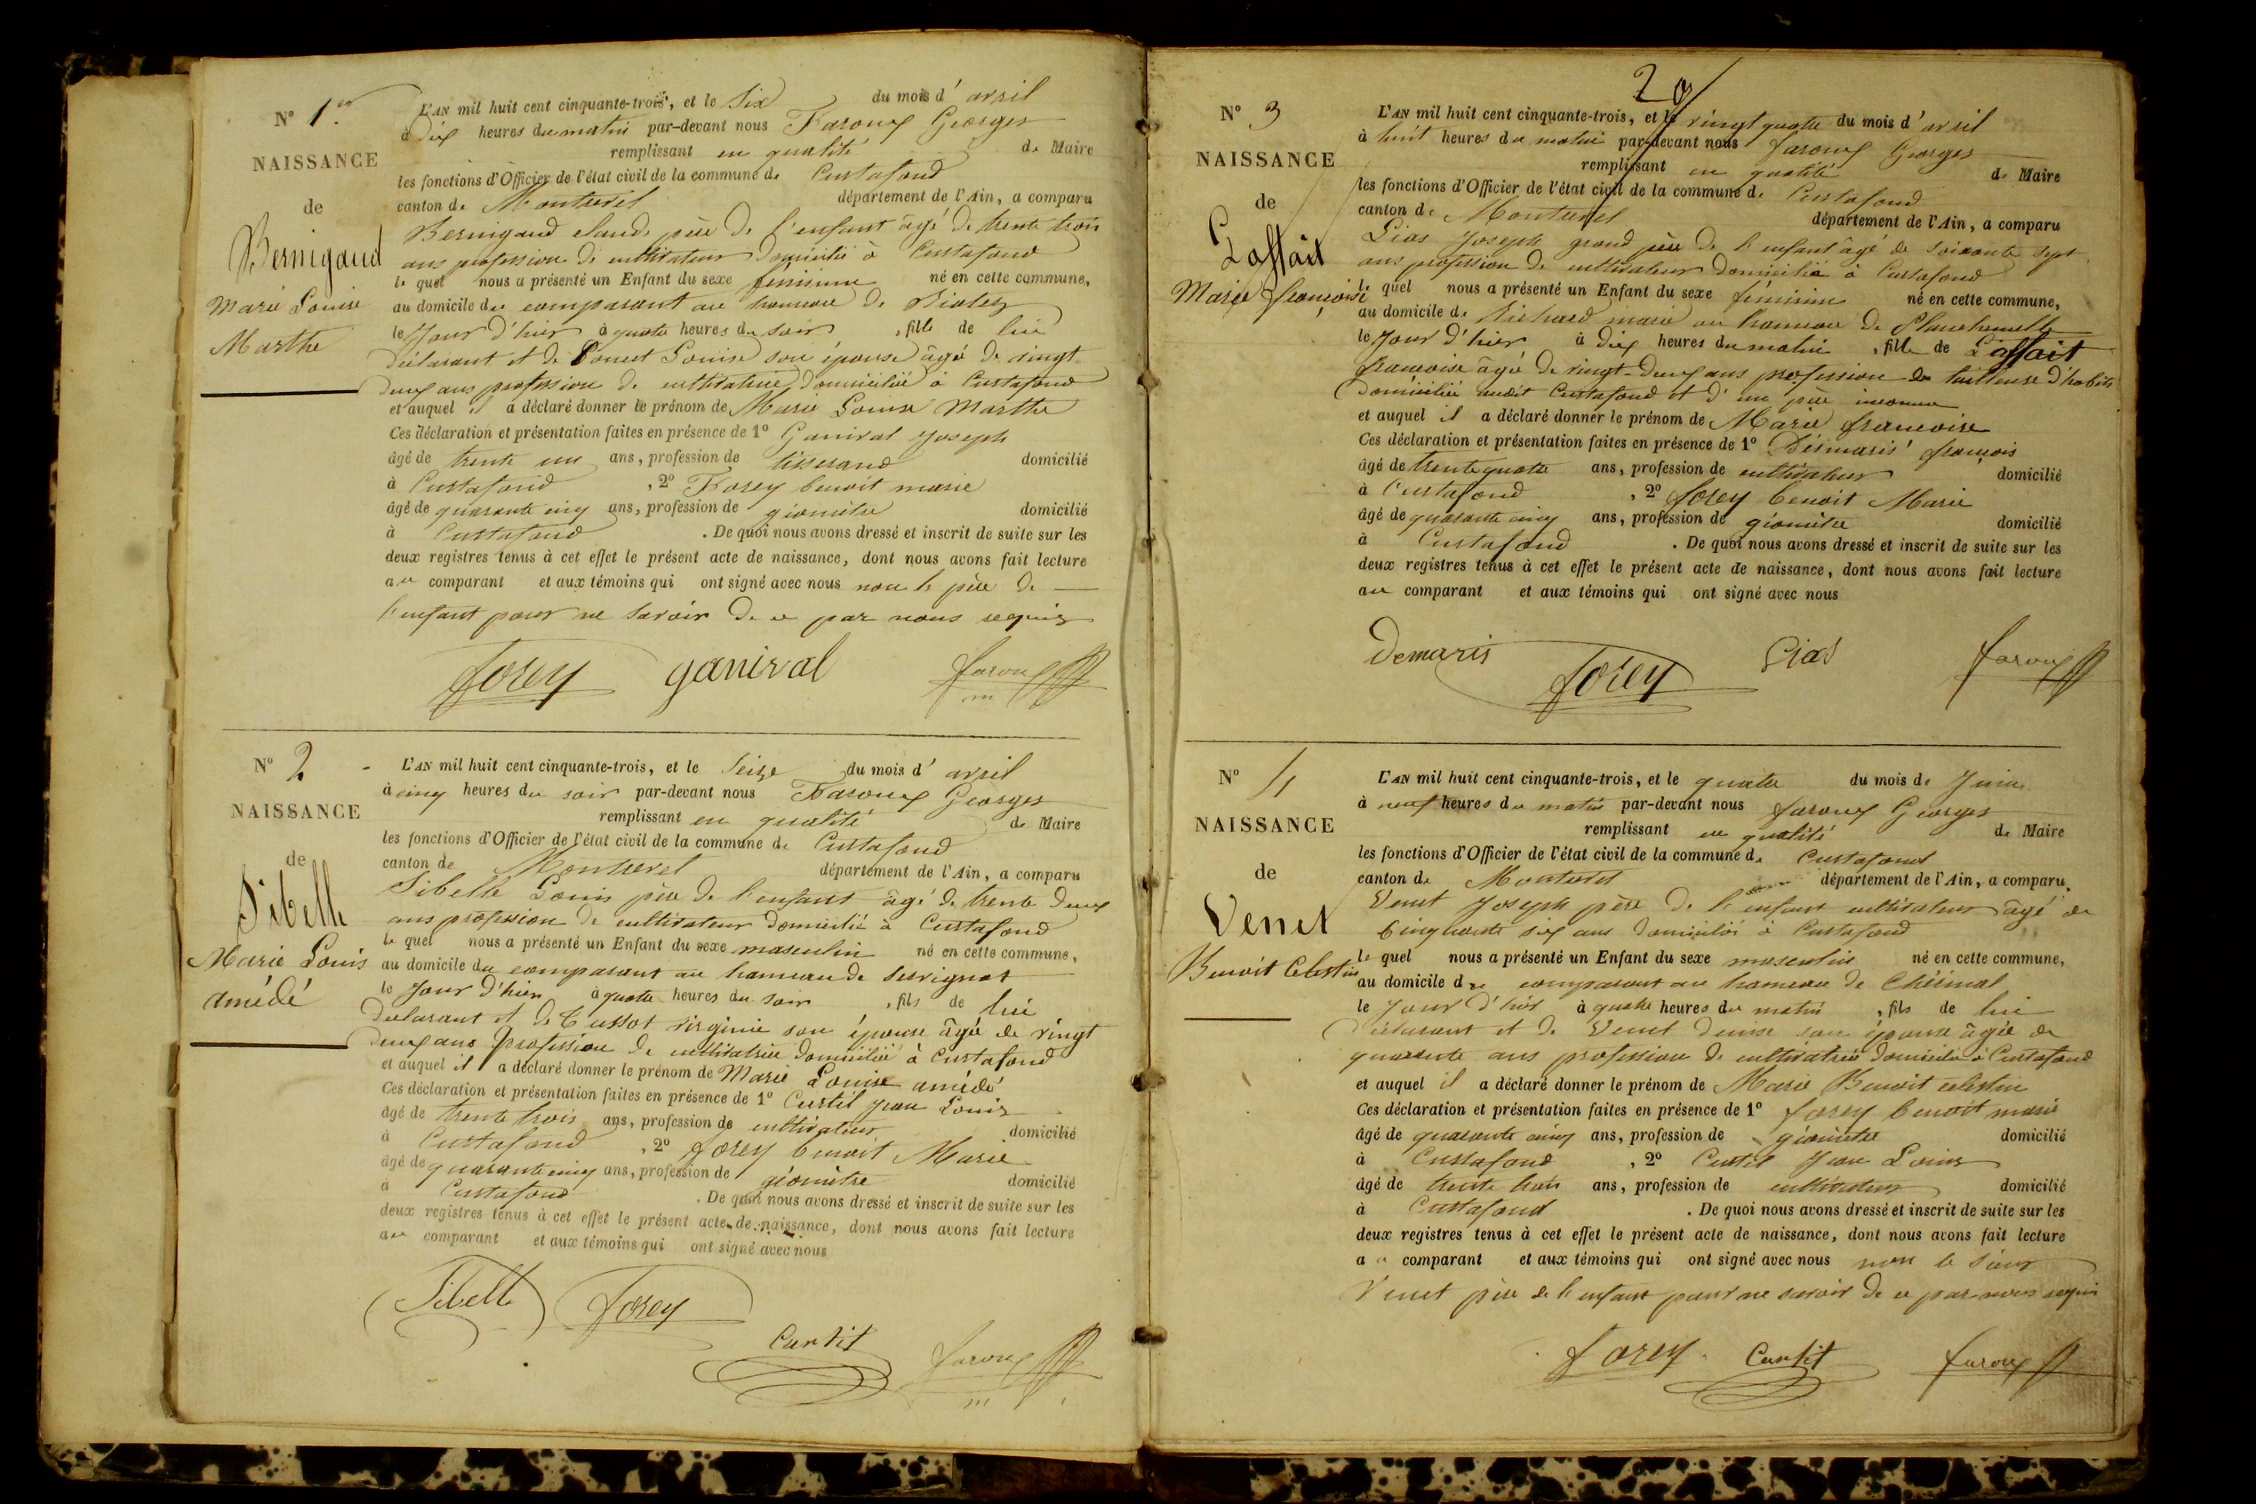 N° 1er
NAISSANCE
de
Bernigaud
Marie Louise
Marthe
L'AN mil huit cent cinquante-trois, et le Six du mois d'avril
à Dix heures du matin par-devant nous Faroux Georges
remplissant en qualité de Maire
les fonctions d'Officier de l'état civil de la commune de Curtafond
canton de Montrevel département de l'Ain, a comparu
Bernigaud claude père de l'enfant âgé de trente trois
ans profession de cultivateur domicilié à Curtafond
le quel nous a présenté un Enfant du sexe féminin né en cette commune,
au domicile du comparant au hameau de
le Jour d'hier à quatre heures du soir, fille de lui
déclarant et de Louise son épouse âgée de vingt
deux ans profession de cultivatrice, domiciliée à Curtafond
et auquel il a déclaré donner le prénom de Marie Louise Marthe
Ces déclaration et présentation faites en présence de 1° Ganival Joseph
âgé de trente un ans, profession de tisserand domicilié
à Curtafond, 2° Forey benoit marie
âgé de quarante cinq ans, profession de géomètre domicilié
à Curtafond. De quoi nous avons dressé et inscrit de suite sur les
deux registres tenus à cet effet le présent acte de naissance, dont nous avons fait lecture
au comparant et aux témoins qui ont signé avec nous non le père de
l'enfant pour ne savoir de ce par nous requis
forey ganival faroux
m
N° 2
NAISSANCE
de
Sibelle
Marie Louis
amédé
L'AN mil huit cent cinquante-trois, et le Seize du mois d'avril
à cinq heures du soir par-devant nous Faroux Georges
remplissant en qualité de Maire
les fonctions d'Officier de l'état civil de la commune de Curtafond
canton de Montrevel département de l'Ain, a comparu
Sibelle Louis père de l'enfant âgé de trente deux
ans profession de cultivateur domicilié à Curtafond
le quel nous a présenté un Enfant du sexe masculin né en cette commune,
au domicile du comparant au hameau de Servignat
le Jour d'hier à quatre heures du soir, fils de lui
déclarant et de Cussot virginie son épouse âgée de vingt
deux ans profession de cultivatrice domiciliée à Curtafond
et auquel il a déclaré donner le prénom de Marie Louise amédé
Ces déclaration et présentation faites en présence de 1° Curtil Jean Louis
âgé de trente trois ans, profession de cultivateur domicilié
à Curtafond, 2° forey benoit Marie
âgé de quarante cinq ans, profession de géomètre domicilié
à Curtafond. De quoi nous avons dressé et inscrit de suite sur les
deux registres tenus à cet effet le présent acte de naissance, dont nous avons fait lecture
au comparant et aux témoins qui ont signé avec nous
Sibelle forey
Curtil faroux
m
20
N° 3
NAISSANCE
de
Laffait
Marie françoise
L'AN mil huit cent cinquante-trois, et le vingt quatre du mois d'avril
à huit heures du matin par-devant nous faroux Georges
remplissant en qualité de Maire
les fonctions d'Officier de l'état civil de la commune de Curtafond
canton de Montrevel département de l'Ain, a comparu
Gias Joseph grand père de l'enfant âgé de soixante sept
ans profession de cultivateur domicilié à Curtafond
le quel nous a présenté un Enfant du sexe féminin né en cette commune,
au domicile de Richard marie au hameau de
le Jour d'hier à dix heures du matin, fille de Laffait
françoise âgée de vingt-deux ans profession de tailleuse d'habits
domiciliée audit Curtafond et d'un père inconnu
et auquel il a déclaré donner le prénom de Marie francoise
Ces déclaration et présentation faites en présence de 1° Désmaris françois
âgé de trente quatre ans, profession de cultivateur domicilié
à Curtafond, 2° forey benoit Marie
âgé de quarante cinq ans, profession de géomètre domicilié
à Curtafond. De quoi nous avons dressé et inscrit de suite sur les
deux registres tenus à cet effet le présent acte de naissance, dont nous avons fait lecture
au comparant et aux témoins qui ont signé avec nous
Demaris forey Gias faroux
N° 4
NAISSANCE
de
Venet
Benoit Celestin
L'AN mil huit cent cinquante-trois, et le quatre du mois de Juin
à neuf heures du matin par-devant nous faroux Georges
remplissant en qualité de Maire
les fonctions d'Officier de l'état civil de la commune de Curtafond
canton de Montrevel département de l'Ain, a comparu
Venet Joseph père de l'enfant cultivateur âgé de
Cinquante six ans domicilié à Curtafond
le quel nous a présenté un Enfant du sexe masculin né en cette commune,
au domicile du comparant au hameau de
le Jour d'hier à quatre heures du matin, fils de lui
déclarant et de Venet Denise son épouse âgée de
quarante ans profession de cultivatrice domiciliée à Curtafond
et auquel il a déclaré donner le prénom de Marie Benoit celestin
Ces déclaration et présentation faites en présence de 1° forey benoit marie
âgé de quarante cinq ans, profession de géomètre domicilié
à Curtafond, 2° Curtil Jean Louis
âgé de trente trois ans, profession de cultivateur domicilié
à Curtafond. De quoi nous avons dressé et inscrit de suite sur les
deux registres tenus à cet effet le présent acte de naissance, dont nous avons fait lecture
au comparant et aux témoins qui ont signé avec nous non le sieur
Venet père de l'enfant pour ne savoir de ce par nous requis
forey Curtil faroux